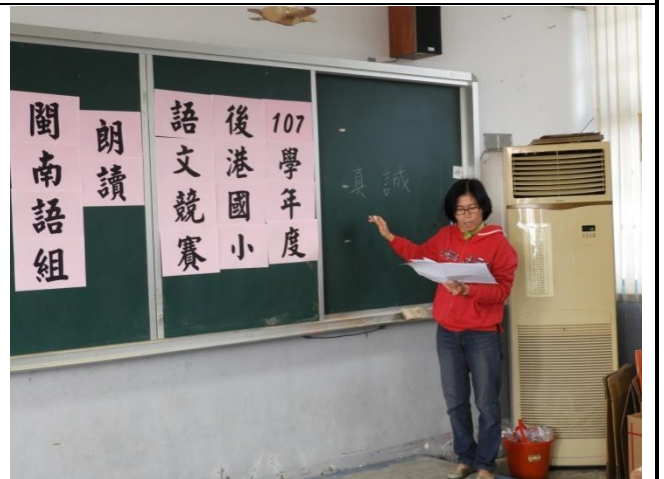 107學年度
後港國小
語文競賽
朗讀
閩南語組
真誠